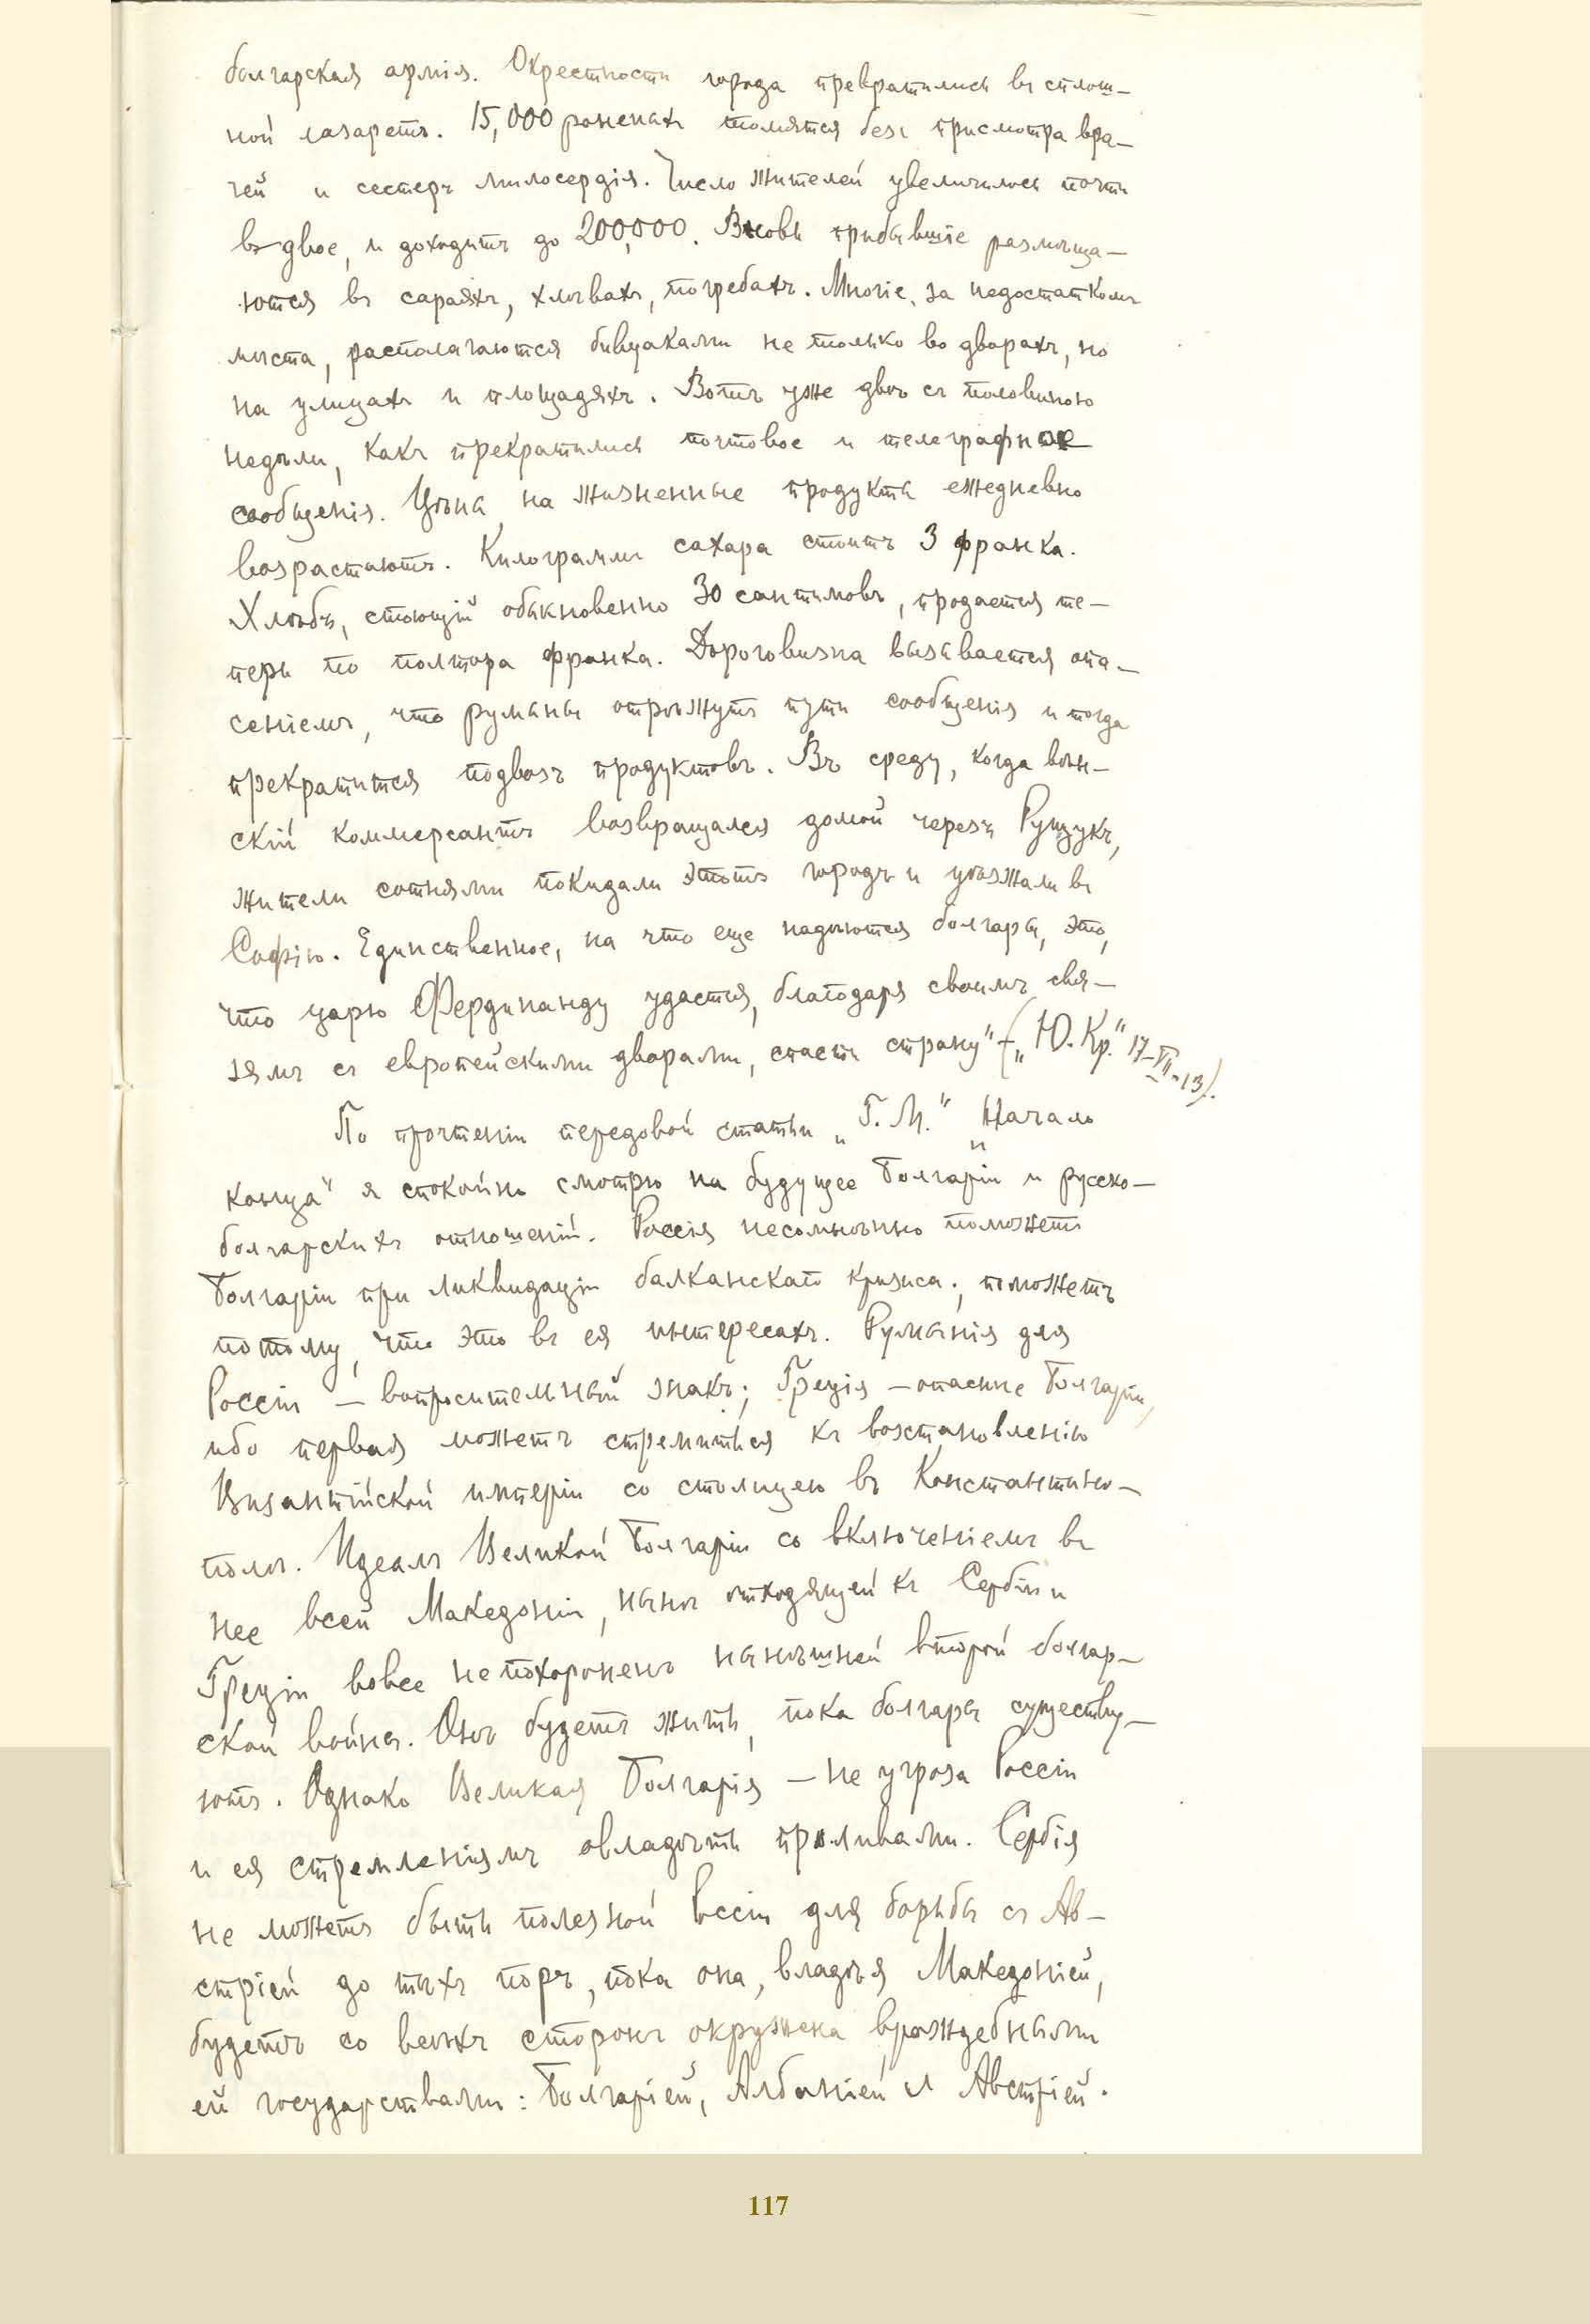 болгарская армія. Окрестности города превратились въ сплош-
ной лазаретъ. 15,000 раненыхъ томятся безъ присмотра вра-
чей и сестеръ милосердія. Число жителей увеличилось почти
вдвое, и доходитъ до 200,000. Вновь прибывшіе размѣща-
ются въ сараяхъ, хлѣвахъ, погребахъ. Многіе, за недостаткомъ
мѣста, располагаются бивуаками не только во дворахъ, но
на улицахъ и площадяхъ. Вотъ уже двѣ съ половиною
недѣли, какъ прекратились почтовое и телеграфное
сообщенія. Цѣны на жизненные продукты ежедневно
возрастаютъ. Килограммъ сахара стоитъ 3 франка.
Хлѣбъ, стоющій обыкновенно 30 сантимовъ, продается те-
перь по полтора франка. Дороговизна вызывается опа-
сеніемъ, что румыны отрѣжутъ пути сообщенія и тогда
прекратится подвозъ продуктовъ. Въ среду, когда вѣн-
скій коммерсантъ возвращался домой черезъ Рущукъ,
жители сотнями покидали этотъ городъ и уѣзжали въ
Софію. Единственное, на что еще надѣются болгары, это,
что царю Фердинанду удастся, благодаря своимъ свя-
зямъ съ европейскими дворами, спасти страну" („Ю. Кр." 17-VII-13).
По прочтеніи передовой статьи „Г. М." „Начало
конца" я спокойно смотрю на будущее Болгаріи и русско-
болгарскихъ отношеній. Россія несомнѣнно поможетъ
Болгаріи при ликвидаціи балканскаго кризиса; поможетъ
потому, что это въ ея интересахъ. Румынія для
Россіи — вопросительный знакъ; Греція — опаснѣе Болгаріи,
ибо первая можетъ стремиться къ возстановленію
Византійской имперіи со столицею въ Константино-
полѣ. Идеалъ Великой Болгаріи со включеніемъ въ
нее всей Македоніи, нынѣ отходящей къ Сербіи и
Греціи вовсе не похороненъ нынѣшней второй болгар-
ской войной. Онъ будетъ жить, пока болгары существу-
ютъ. Однако Великая Болгарія — не угроза Россіи
и ея стремленіямъ овладѣть проливами. Сербія
не можетъ быть полезной Россіи для борьбы съ Ав-
стріей до тѣхъ поръ, пока она, владѣя Македоніей,
будетъ со всѣхъ сторонъ окружена враждебными
ей государствами: Болгаріей, Албаніей и Австріей.
117